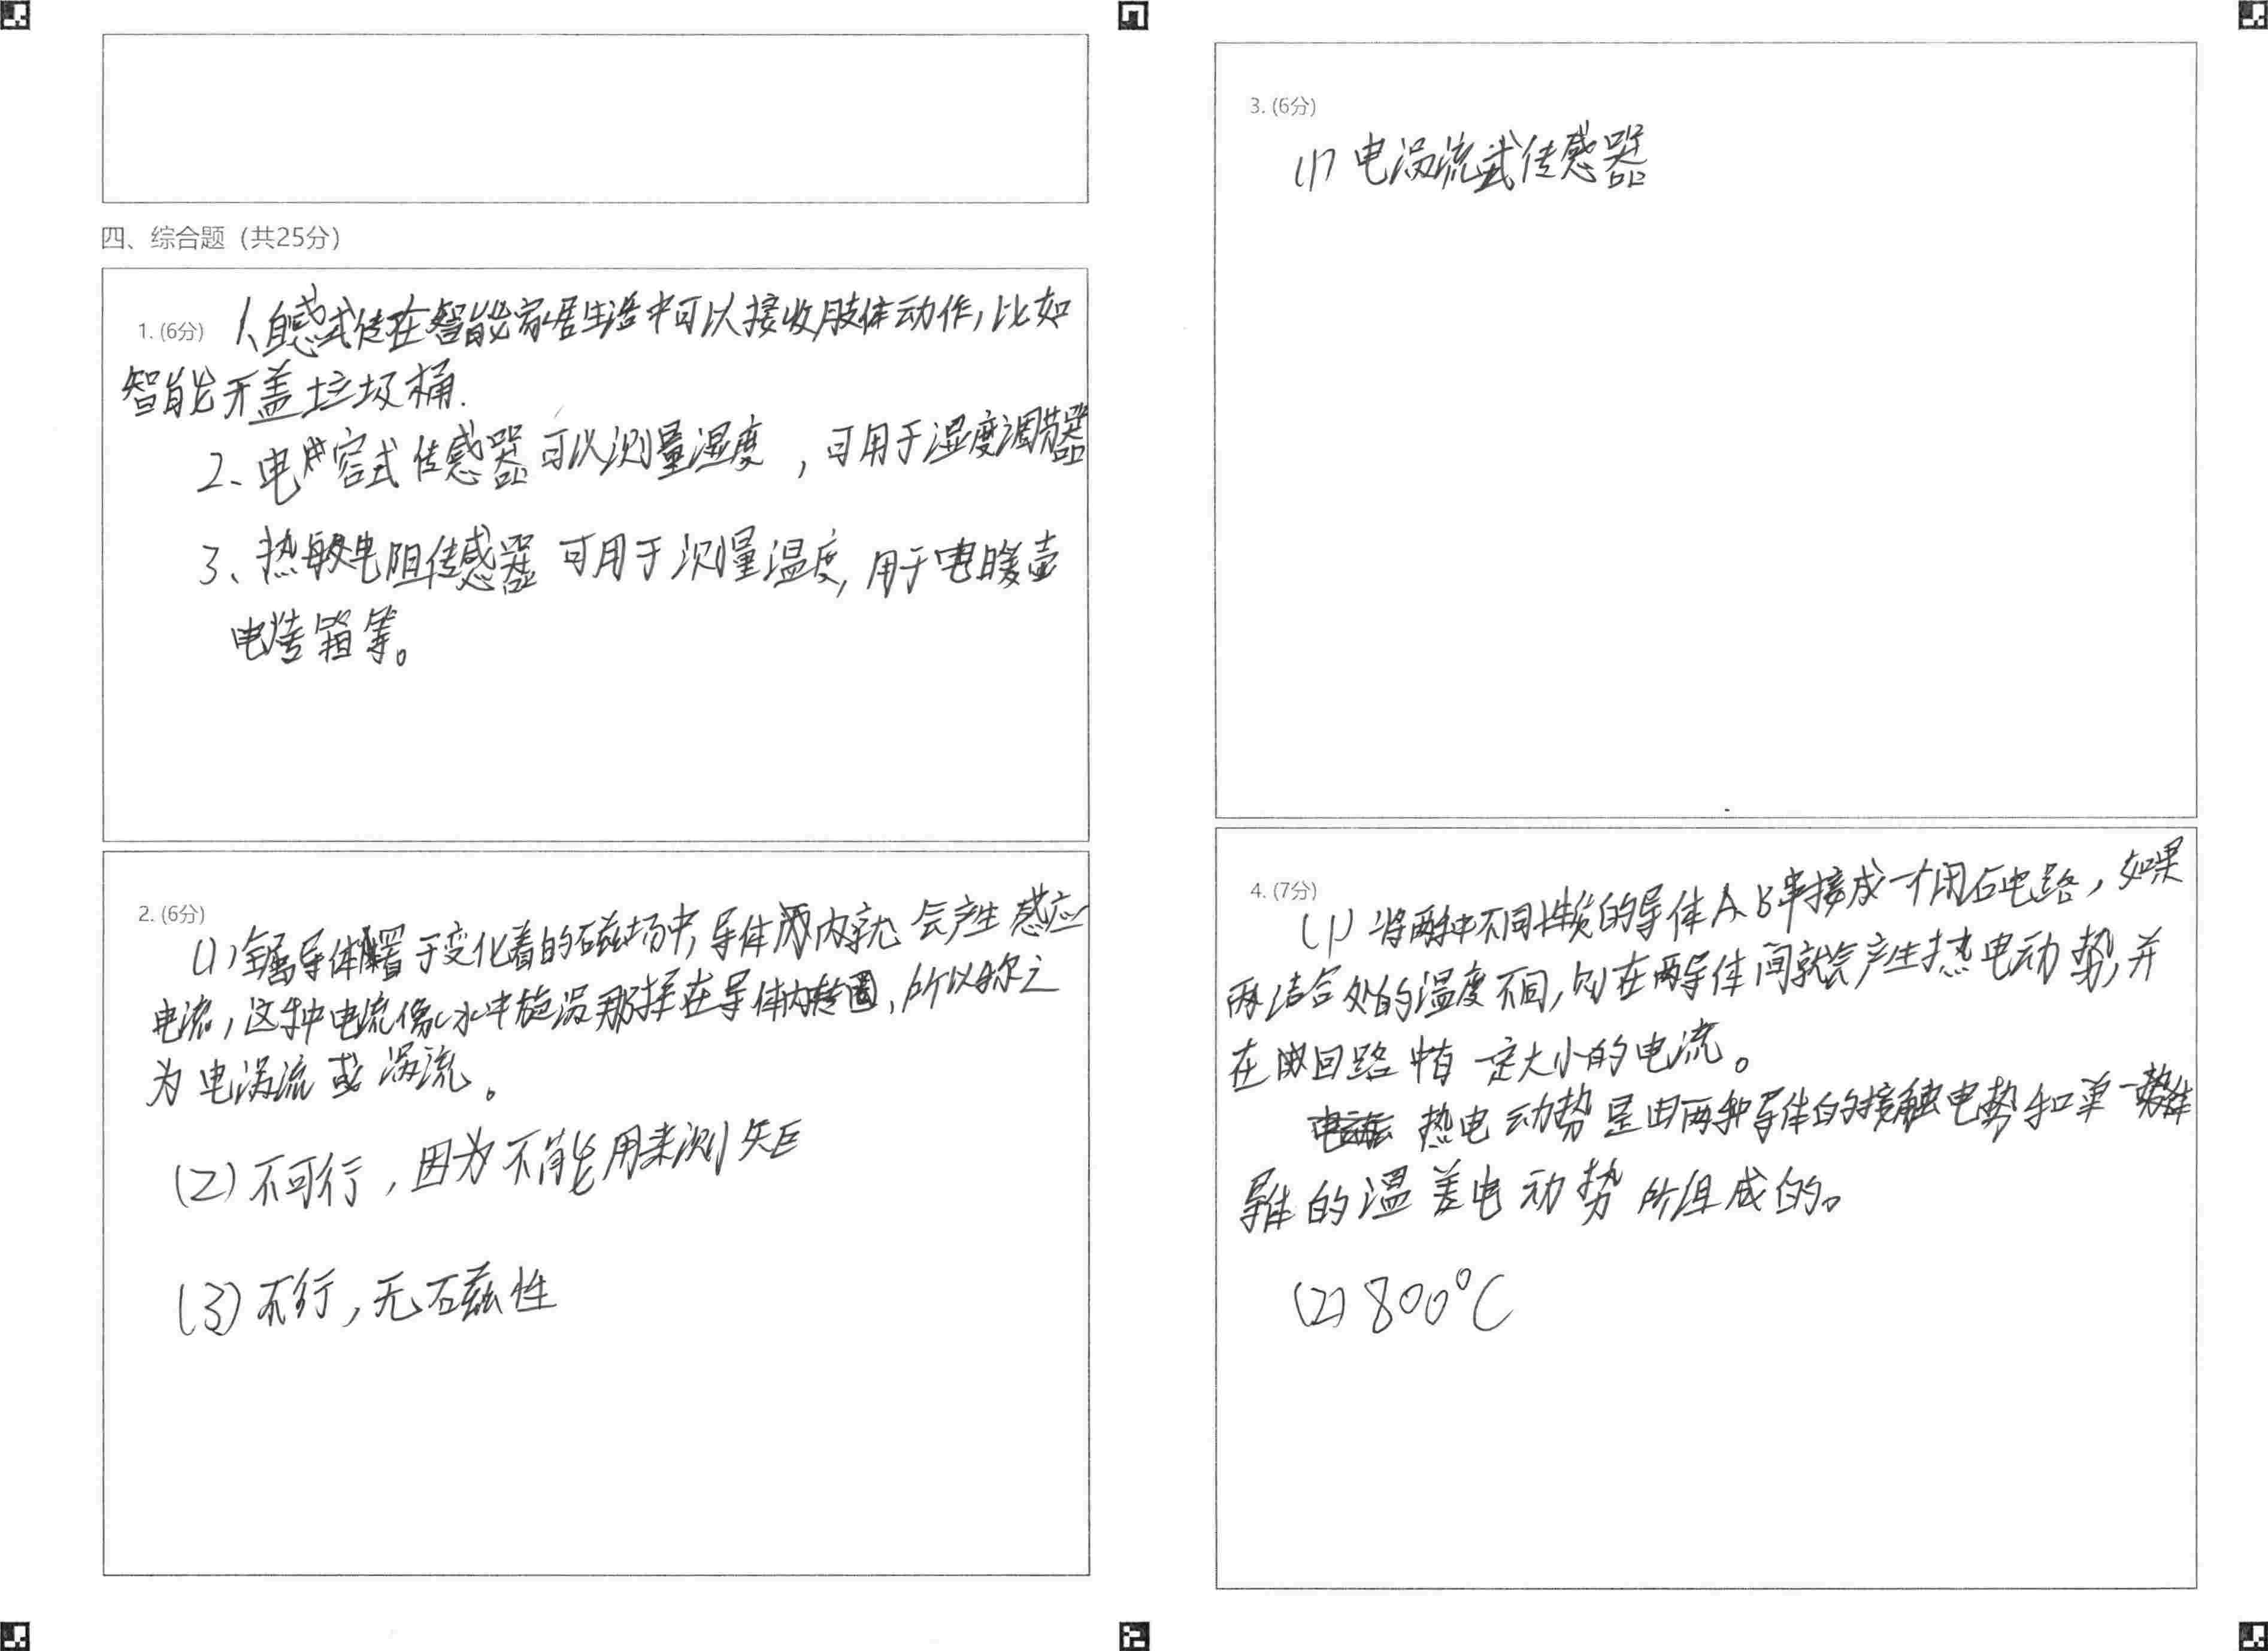 四、综合题（共25分）
1. (6分) 人自感式传在智能家居生活中可以接收肢体动作,比如
智能开盖垃圾桶.
2、电容式传感器可以测量湿度，可用于湿度调节器
3、热敏电阻传感器 可用于测量温度,用于电暖壶
电烤箱等。
2. (6分)
(1)金属导体置于变化着的磁场中,导体内就会产生感应
电流,这种电流像水中旋涡那样在导体内转圈,所以称之
为电涡流或涡流。
(2)不可行,因为不能用来测矢巨
(3)不行,无磁性
3. (6分)
(1) 电涡流式传感器
4. (7分)
(1) 将两种不同性质的导体A、B串接成一个闭合电路,如果
两结合处的温度不同,则在两导体间就会产生热电动势,并
在回路中有一定大小的电流。
热电动势是由两种导体的接触电势和单一
导体的温差电动势所组成的。
(2) 800°C